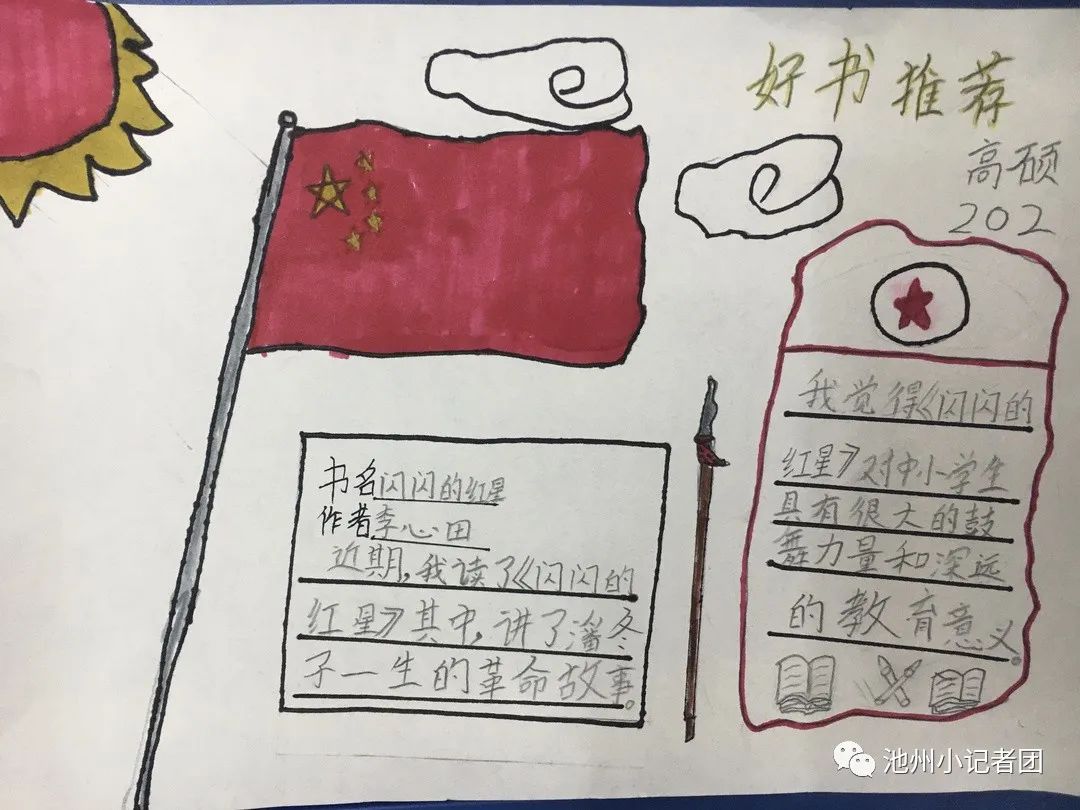 好书推荐
高硕
202
书名闪闪的红星
作者李心田
近期,我读了《闪闪的
红星》其中,讲了潘冬
子一生的革命故事。
我觉得《闪闪的
红星》对中小学生
具有很大的鼓
舞力量和深远
的教育意义。
池州小记者团